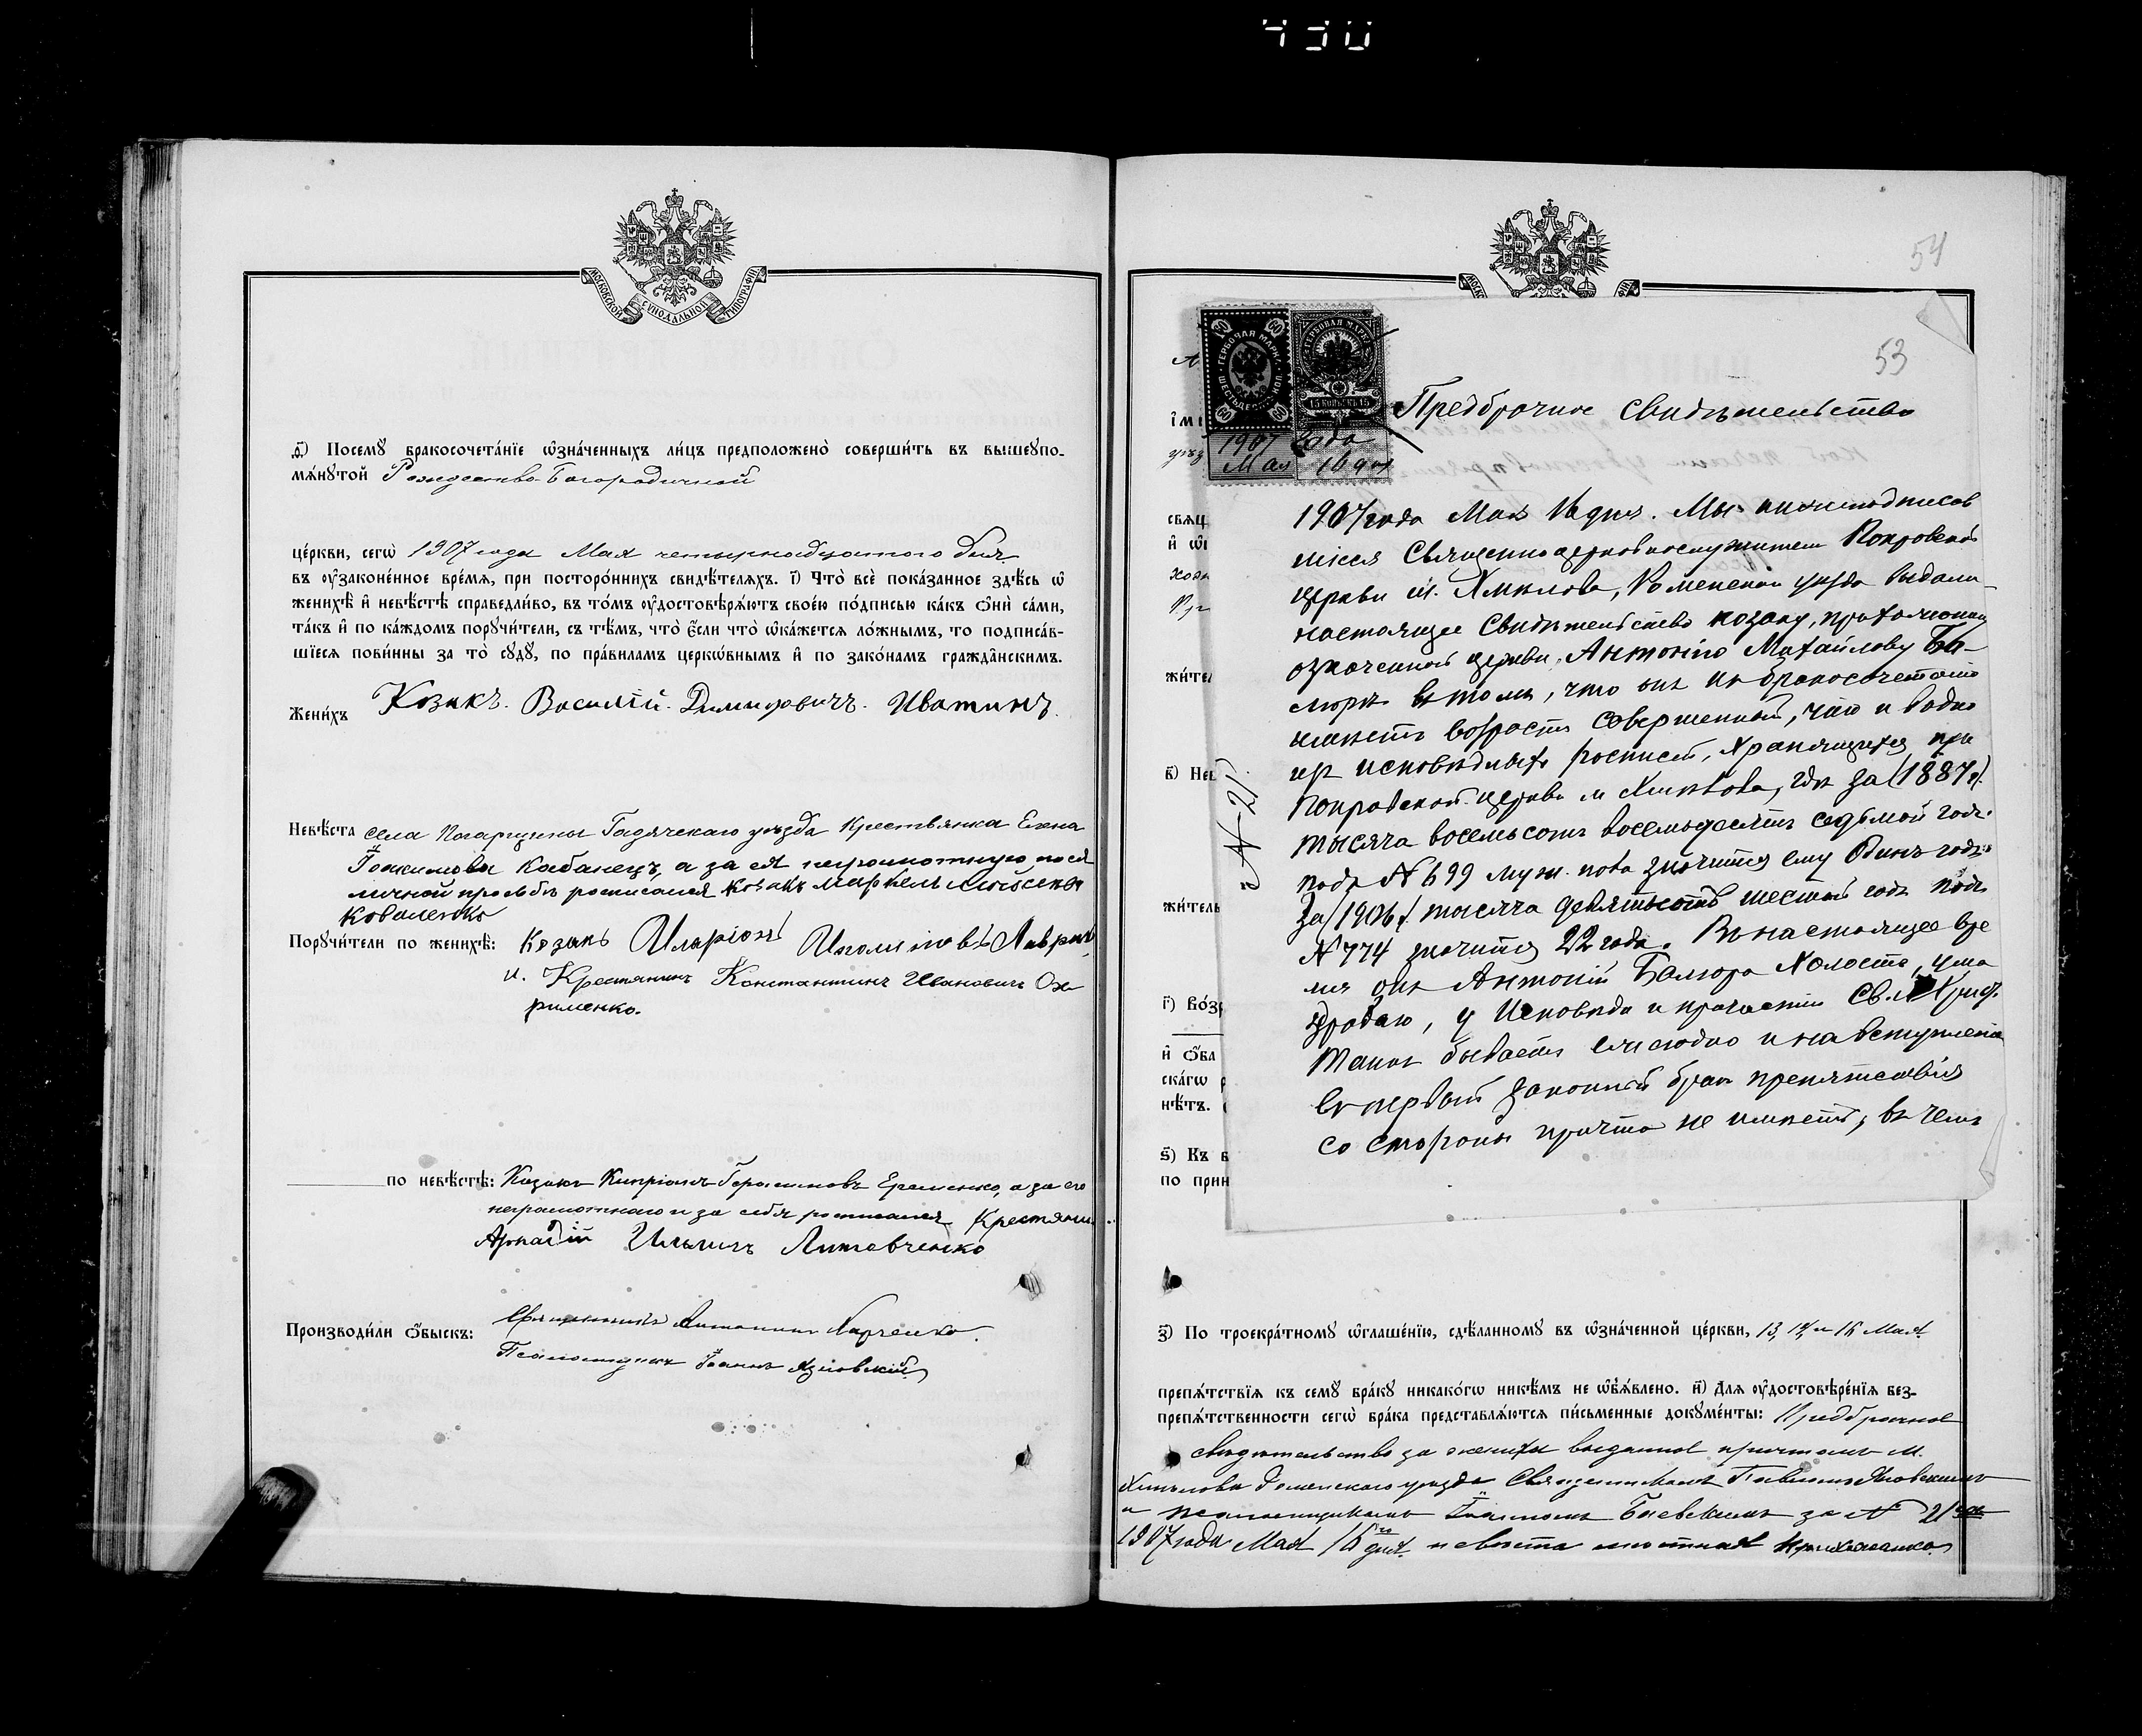 430
МОСКОВСКОЙ СУНОДАЛЬНОЙ ТИПОГРАФІИ
д҃) Посемꙋ бракосочета́нїе ѡ҆зна́ченныхъ ли́цъ предположено̀ соверши́ть въ вышеꙋпо-
мѧ́нꙋтой Рождество-Богородичной
це́ркви, сегѡ̀ 1907 года Мая четырнадцатого дня
въ ᲂу҆законе́нное вре́мѧ, при посторо́ннихъ свидѣ́телѧхъ. і҃) Что̀ всѐ пока́занное здѣ́сь ѡ҆
женихѣ̀ и҆ невѣ́стѣ справедли́во, въ то́мъ ᲂу҆достовѣрѧ́ютъ свое́ю по́дписью ка́къ ѻ҆нѝ са́ми,
та́къ и҆ по ка́ждомъ порꙋчи́тели, съ тѣ́мъ, что̀ є҆́сли что̀ ѡ҆ка́жетсѧ ло́жнымъ, то подписа́в-
шїесѧ пови́нны за то̀ сꙋдꙋ̀, по пра́виламъ церкѡ́внымъ и҆ по зако́намъ гражда̑нскимъ.
Жени́хъ Козакъ. Василій. Димитровичъ. Иватинъ.
Невѣ́ста села Погарщины Гадячскаго уѣзда Крестьянка Елена
Іоакимова Кабанецъ, а за ея неграмотную по ея
личной просьбѣ росписался козакъ
Коваленко
Порꙋчи́тели по женихѣ̀: Козакъ Иларіонъ Лаврин
и. Крестянинъ Константинъ Ивановичъ Ох
рименко.
по невѣ́стѣ: Козакъ Кипріянъ Герасимовъ Еременко, а за его
неграмотнаго и за себя росписался Крестянин
Аркадій Ильичъ Литовченко
Производи́ли ѻ҆́быскъ: Священникъ Харченко.
Псаломщикъ Іоаннъ
54
53
ГЕРБОВАЯ МАРКА ШЕСТЬДЕСЯТ КОП. 60
ГЕРБОВАЯ МАРКА 15 КОПѢЕКЪ 15
1907 года
Мая 16 дня
№ 21
Предбрачное свидѣтельство
1907 года Мая 16 дня. Мы нижеподписав
шіеся Священноцерковнослужители Покровской
церкви м. Хмѣлова, Роменскаго уѣзда выдали
настоящее Свидѣтельство козаку, прихожанину
означенной церкви, Антонію Михайлову Ба-
люрѣ въ томъ, что онъ къ бракосочетанію
имѣетъ возрастъ совершенный, какъ и видно
изъ исповѣдныхъ росписей, хранящихся при
Покровской церкви м Хмѣлова, гдѣ за (1887 г.)
тысяча восемьсотъ восемьдесятъ седьмой годъ
подъ № 699 муж. пола значится ему Одинъ годъ
За (1906) тысяча девятьсотъ шестой годъ подъ
№ 774 значится 22 года. Въ настоящее вре
мя онъ Антоній Балюра Холостъ, ума
здраваго, у Исповѣди и причастія Св. Христ.
Таинъ бываетъ ежегодно и на вступленіе
въ первый законный бракъ препятствія
со стороны причта не имѣетъ, въ чемъ
з҃) По троекра́тномꙋ ѡ҆глаше́нїю, сдѣ́ланномꙋ въ ѡ҆зна́ченной це́ркви, 13, 14 и 16 Мая
препѧ́тствїѧ къ семꙋ̀ бра́кꙋ никако́гѡ никѣ́мъ не ѡ҆б̾ѧ́влено. и҃) Длѧ ᲂу҆достовѣре́нїѧ без-
препѧ́тственности сегѡ̀ бра́ка представлѧ́ютсѧ пи́сьменные докꙋме́нты: Предбрачное
свидетельство за жениха выданное причтомъ м.
Хмѣлова Роменскаго уѣзда Священникомъ Павломъ
и псаломщикомъ Іоанномъ за № 21
1907 года Мая 16 дня. невѣста мѣстная прихожанка